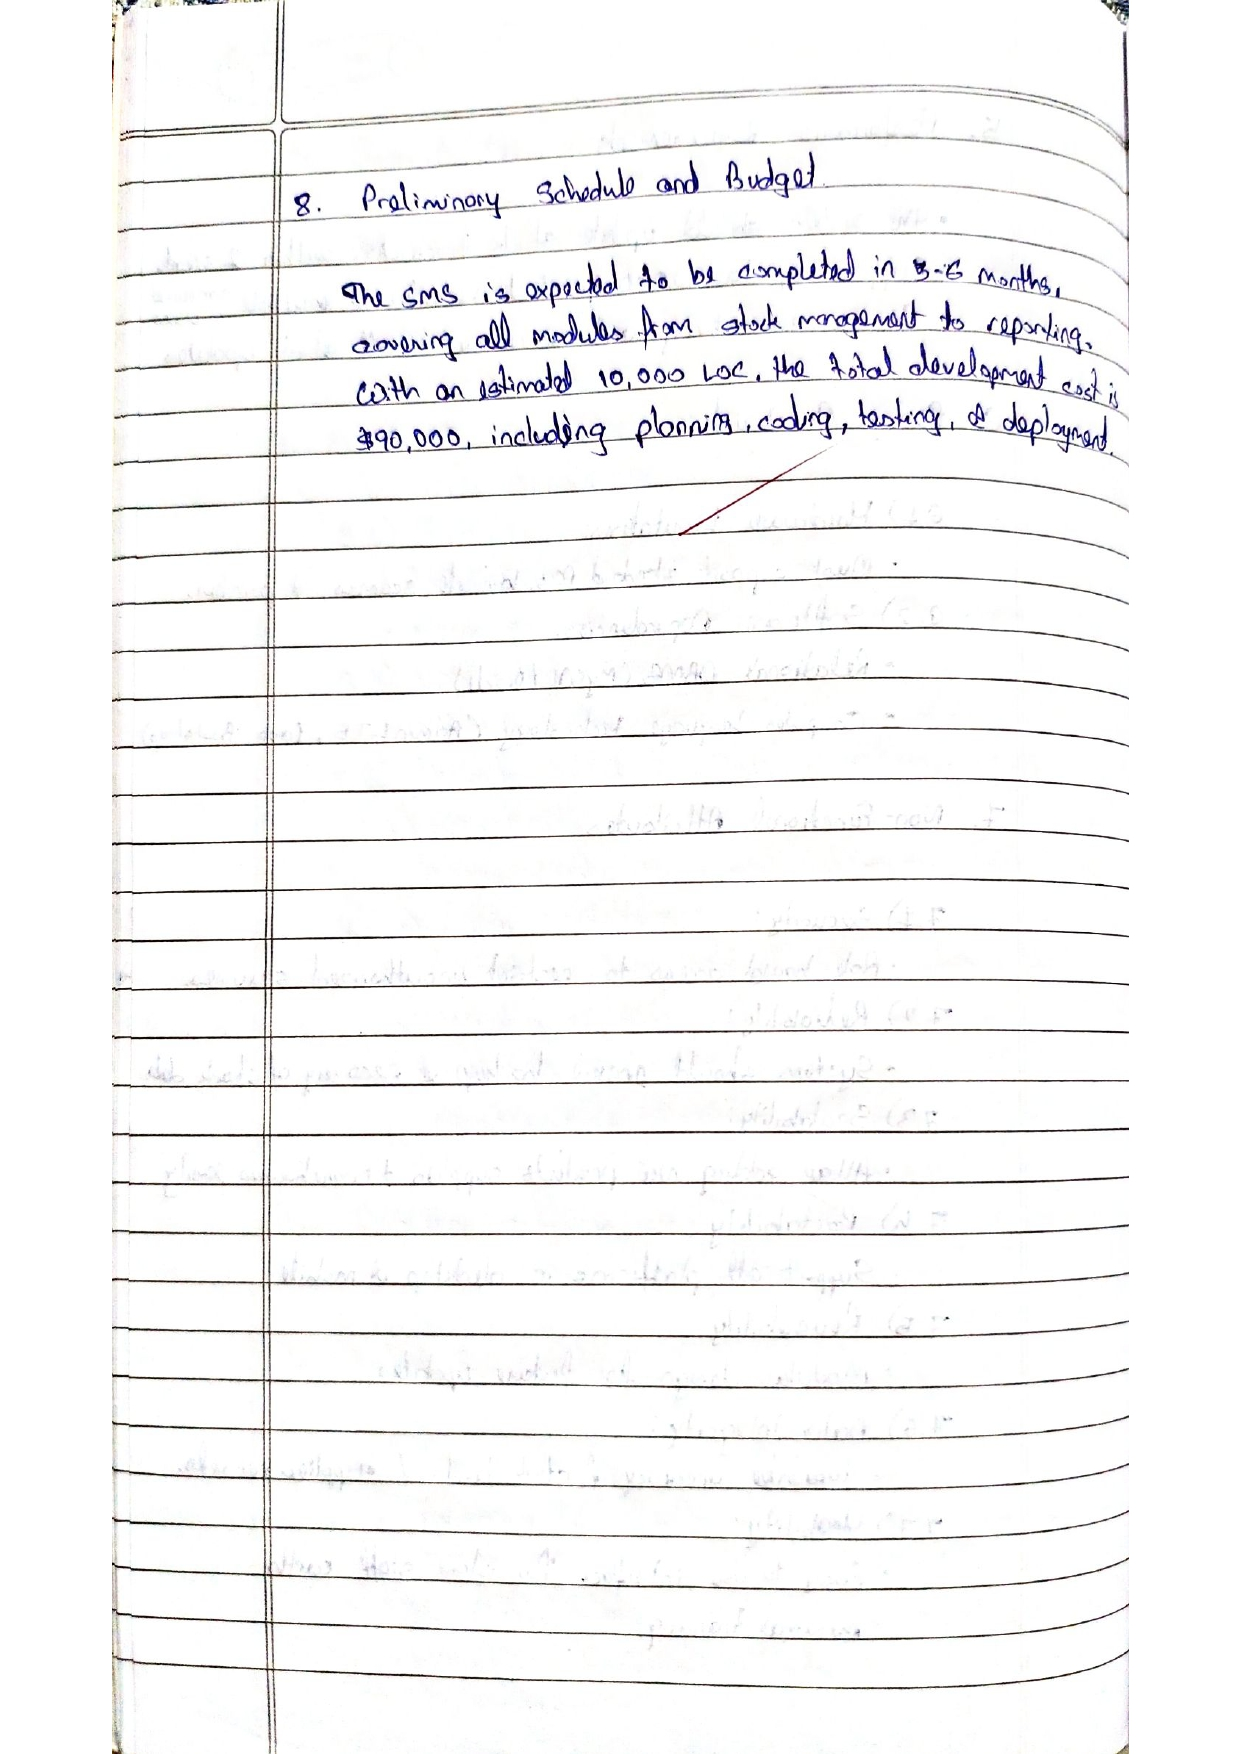 8. Preliminary Schedule and Budget
The SMS is expected to be completed in 5-6 months,
covering all modules from stock management to reporting.
With an estimated 10,000 LOC, the total development cost is
$90,000, including planning, coding, testing, & deployment.